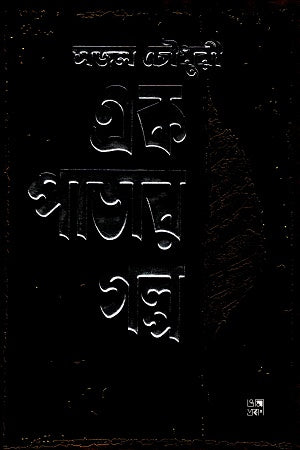 সজল চৌধুরী
এক
পাতার
গল্প